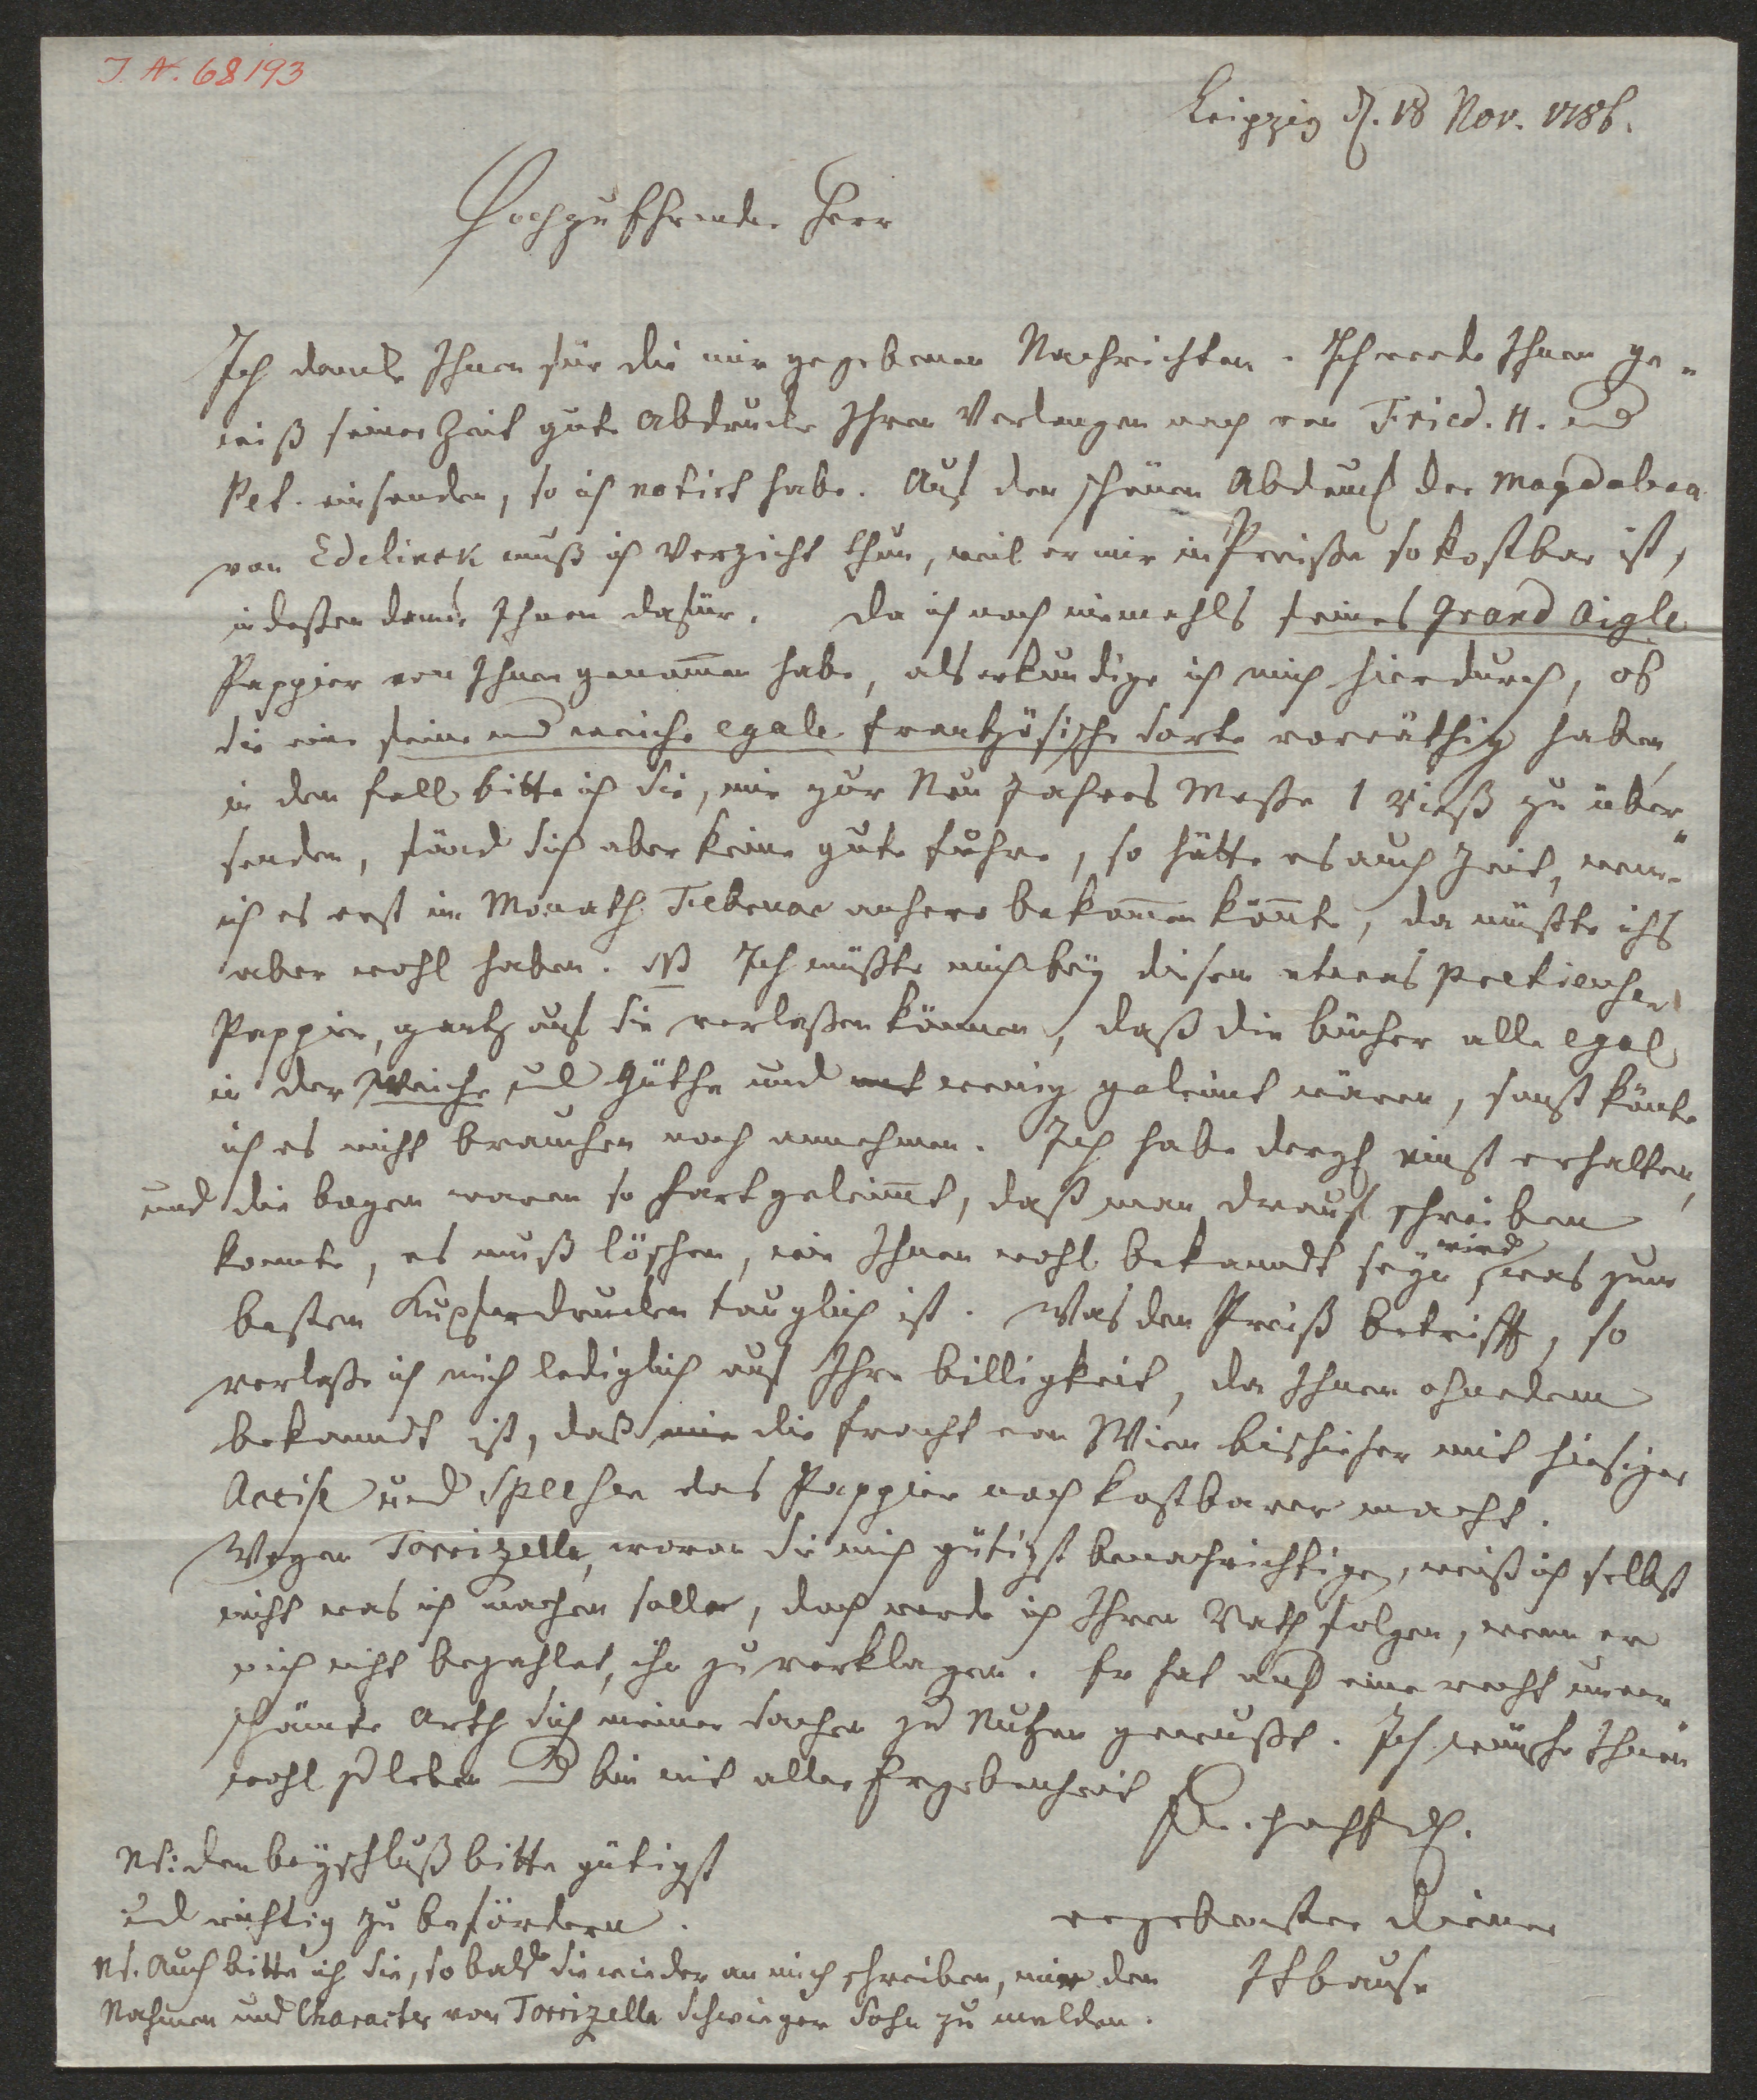 I. N. 68193
Leipzig d. 18 Nov. 1786.
Hochzuehrender Herr
Ich danke Ihnen für die mir gegebenen Nachrichten. Ich werde Ihnen ge-
wiß seiner Zeit gute Abdrucke Ihren Verlangen nach von Fried. II. und
Pet. einsenden, so ich notirt habe. Auf den schönen Abdruck der Magdalena
von Edelinck muß ich Verzicht thun, weil er mir in Preiße so kostbar ist,
indeßen danke Ihnen dafür. Da ich noch niemahls feines Grand Aigle
Pappier von Ihnen genommen habe, als erkundige ich mich hierdurch, ob
Sie eine feine und weiche egale frantzösische Sorte vorräthig haben,
in dem fall bitte ich Sie, mir zur Neu Jahres Meße 1 Rieß zu über-
senden, fänd sich aber keine gute fuhre, so hätte es auch Zeit, wenn
ich es erst im Monath Februar anhero bekommen könnte, da müßte ichs
aber wohl haben. NB Ich müßte mich bey diesen etwas
Pappier, gantz auf Sie verlaßen können, daß die bücher alle egal
in der Weiche und Güthe und wenig geleimt wären, sonst könte
ich es nicht brauchen noch annehmen. Ich habe dergl einst erhalten,
und die bogen waren so hart geleimt, daß man drauf schreiben
konnte, es muß löschen, wie Ihnen wohl bekanndt seyn wird, was zum
besten Kupferdrucken tauglich ist. Was den Preiß betrifft, so
verlaße ich mich lediglich auf Ihre billigkeit, da Ihnen ohnedem
bekanndt ist, daß mir die fracht von Wien bishieher mit hiesiger
Accise und Speesen das Pappier noch kostbarer macht.
Wegen Torrizella, wovon Sie mich gütigst benachrichtigen, weiß ich selbst
nicht was ich machen solle, doch werde ich Ihren Rath folgen, wenn er
mich nicht bezahlet, ihn zu verklagen. Er hat auf eine recht unver-
schämte Arth sich meiner Sachen zu Nutzen gewußt. Ich wünsche Ihnen
wohl zu leben und bin mit aller Ergebenheit
ergebenster Diener
JFBause
NS: den beyschluß bitte gütigst
und richtig zu befördern.
NS. Auch bitte ich Sie, so bald Sie wieder an mich schreiben, mir den
Nahmen und Character von Torrizella Schwieger Sohn zu melden.